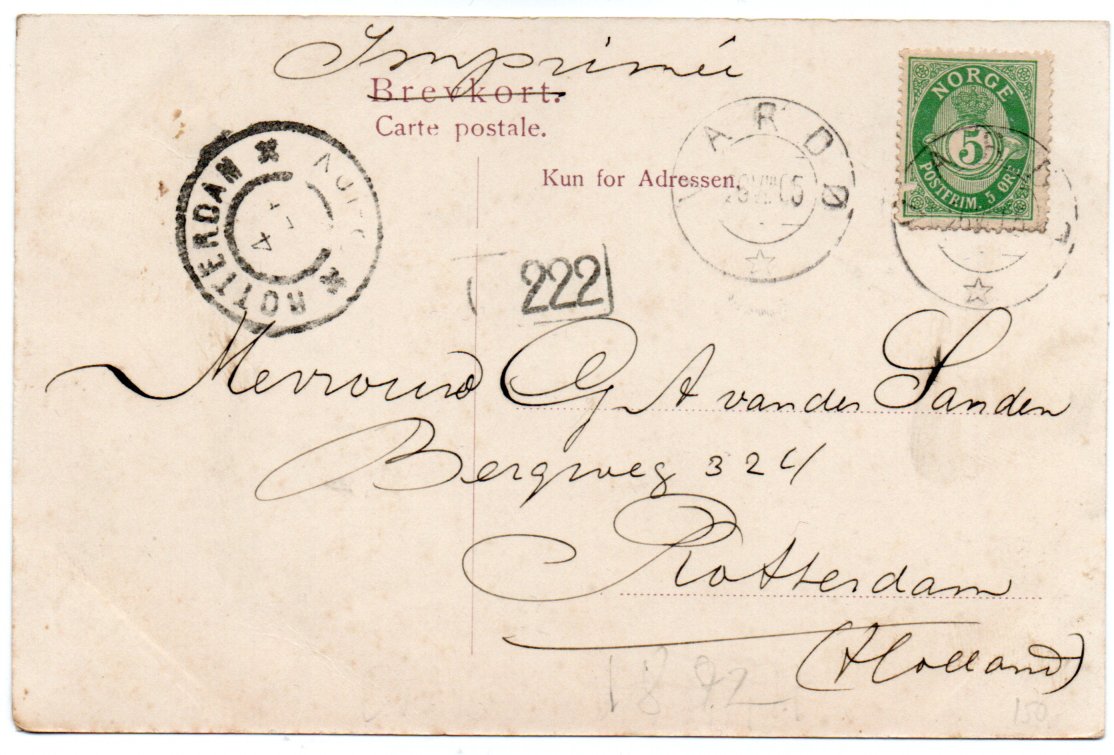 Imprimé
Brevkort.
Carte postale.
Kun for Adressen.
NORGE
5
POSTFRIM. 5 ØRE
VARDØ
ROTTERDAM
222
Mevrouw G A van der Sanden
Bergweg 324
Rotterdam
(Holland)
150